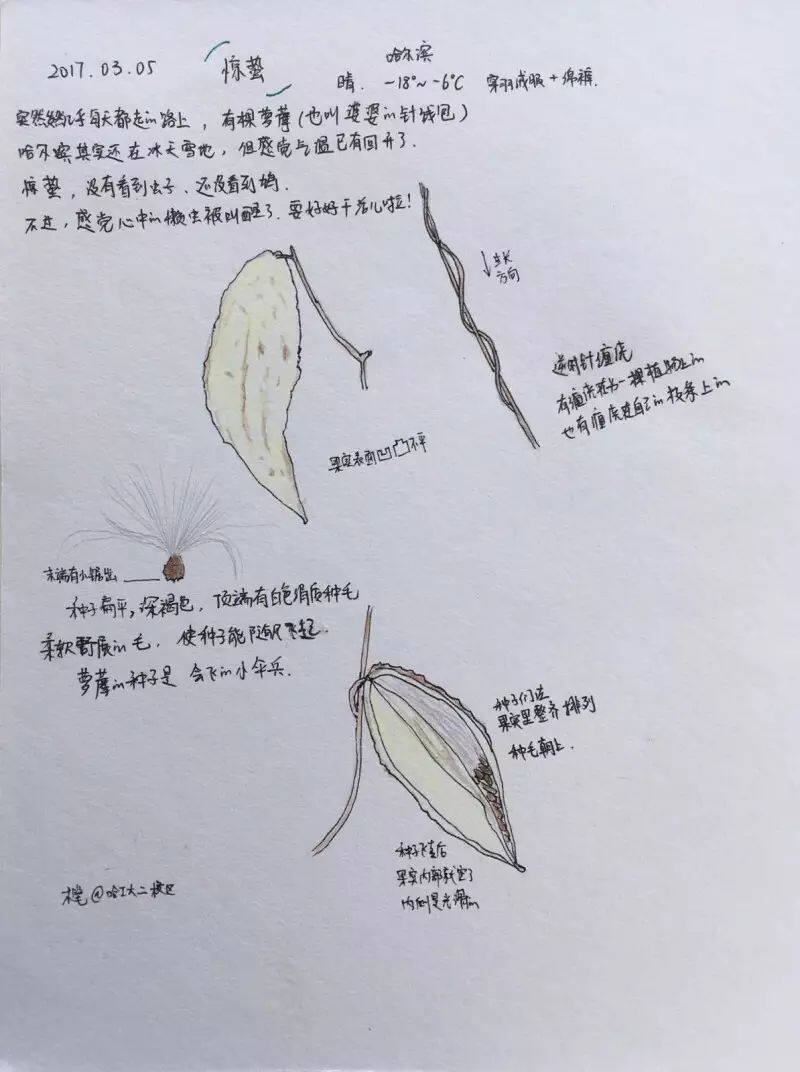 2017.03.05 惊蛰 哈尔滨
晴. -18°~ -6°C 穿羽绒服+绵裤.
几乎每天都走in路上，有棵萝藦(也叫婆婆in针线包)
哈尔滨其实还在冰天雪地，但感觉气温已有回升了.
惊蛰，没有看到虫子、还没看到鸠.
不过，感觉心中in懒虫被叫醒了.要好好干活儿啦!
生长
方向
逆时针缠绕
有缠绕在另一棵植物上in
也有缠绕在自己in枝条上in
果实表面凹凸不平
末端有小锯齿
种子扁平，深褐色，顶端有白色绢质种毛
柔软 in毛，使种子能随风飞起.
萝藦in种子是 会飞in小伞兵.
种子们在
果实里整齐排列
种毛朝上.
种子飞走后
果实内部就空了
内侧是光滑in
@哈工大二校区